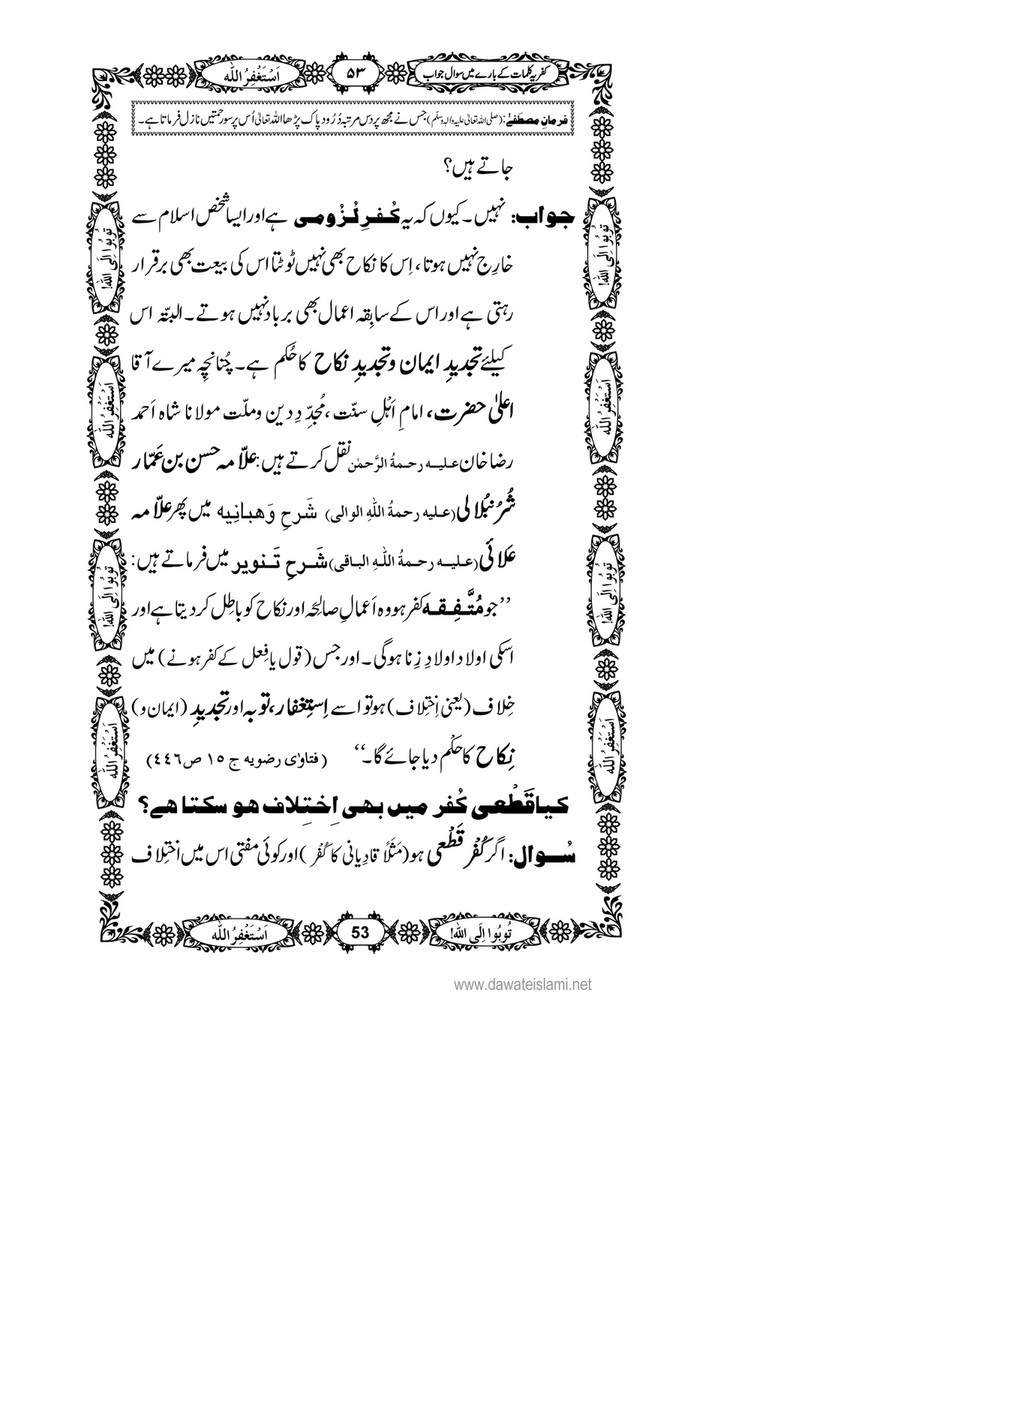 کفریہ کلمات کے بارے میں سوال جواب
۵۳
اَسْتَغْفِرُ اللّٰه
فرمانِ مصطفٰے: (صلی اللہ تعالیٰ علیہ والہ وسلم) جس نے مجھ پر دس مرتبہ دُرُود پاک پڑھا اللہ تعالیٰ اُس پر سو رحمتیں نازل فرماتا ہے۔
جاتے ہیں؟
جواب: نہیں۔ کیوں کہ یہ کُفرِ لُزُومی ہے اور ایسا شخص اسلام سے
خارِج نہیں ہوتا، اِس کا نکاح بھی نہیں ٹوٹتا اس کی بیعت بھی برقرار
رہتی ہے اور اس کے سابِقہ اعمال بھی برباد نہیں ہوتے۔ البتّہ اس
کیلئے تجدیدِ ایمان و تجدیدِ نکاح کا حُکم ہے۔ چُنانچِہ میرے آقا
اعلیٰ حضرت، امامِ اَہْلِ سنّت، مُجَدِّدِ دین وملّت مولانا شاہ اَحمد
رضا خان علیہ رحمۃُ الرَّحمٰن نقل کرتے ہیں: علّامہ حسن بن عَمّار
شُرُنبُلالی (علیہ رحمۃُ اللّٰہِ الوالی) شَرحِ وَھبانِیہ میں پھر علّامہ
عَلائی (علیہ رحمۃُ اللّٰہِ الباقی) شَرحِ تَنویر میں فرماتے ہیں:
’’جو مُتَّفِقہ کفر ہو وہ اَعمالِ صالِحَہ اور نکاح کو باطِل کر دیتا ہے اور
اسکی اولاد اولادِ زِنا ہوگی۔ اور جس (قول یا فِعل کے کفر ہونے) میں
خِلاف (یعنی اِختِلاف) ہو تو اسے اِستِغفار، توبہ اور تجدیدِ (ایمان و)
نِکاح کا حُکْم دیا جائے گا۔‘‘ (فتاوٰی رضویه ج ۱۵ ص ٤٤٦)
کیا قَطْعی کُفر میں بھی اِختِلاف ہو سکتا ہے؟
سُوال: اگر کُفْرِ قَطْعی ہو (مَثَلاً قادِیانی کا کُفْر) اور کوئی مفتی اس میں اختِلاف
تُوبُوا اِلَی اللّٰه!
اَسْتَغْفِرُ اللّٰه
تُوبُوا اِلَی اللّٰه!
اَسْتَغْفِرُ اللّٰه
تُوبُوا اِلَی اللّٰه!
اَسْتَغْفِرُ اللّٰه
تُوبُوا اِلَی اللّٰه!
اَسْتَغْفِرُ اللّٰه
تُوبُوا اِلَی اللّٰه!
53
اَسْتَغْفِرُ اللّٰه
www.dawateislami.net